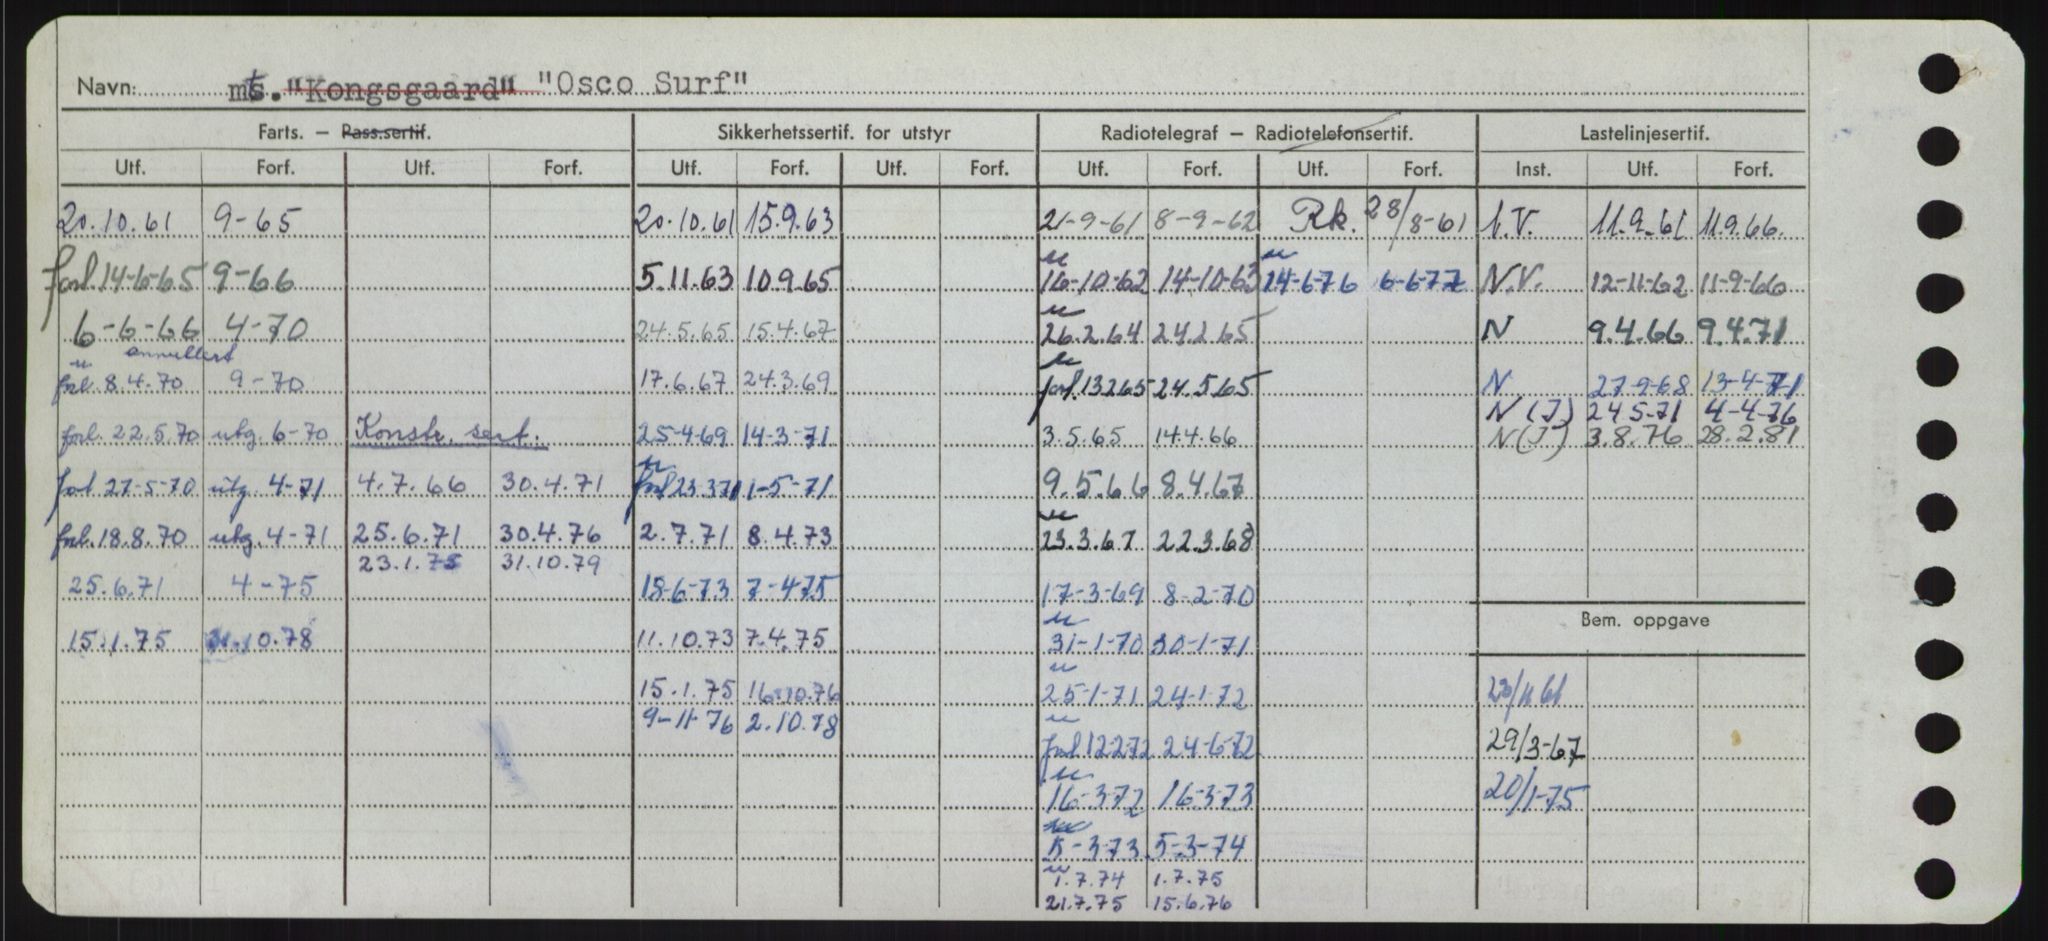 Navn: mts. "Kongsgaard" "Osco Surf"
Farts. – Pass.sertif. Sikkerhetssertif. for utstyr Radiotelegraf – Radiotelefonsertif. Lastelinjesertif.
Utf. Forf. Utf. Forf. Utf. Forf. Utf. Forf. Utf. Forf. Utf. Forf. Inst. Utf. Forf.
20.10.61 9-65 20.10.61 15.9.63 21-9-61 8-9-62 Rk. 28/8-61 N.V. 11.9.61 11.9.66.
forl. 14-6-65 9-66 5.11.63 10.9.65 16-10-62 14-10-63 14-6-76 6-6-77 N.V. 12-11-62 11-9-66
6-6-66 4-70 24.5.65 15.4.67 26.2.64 24.2.65 N 9.4.66 9.4.71
annullert
forl. 8.4.70 9-70 17.6.67 24.3.69 forl. 13265 24.5.65 N 27-9-68 13-4-71
N (I) 24.5-71 4-4-76
forl. 22.5.70 utg. 6-70 Konstr. sert. 25-4-69 14-3-71 3.5.65 14.4.66 N(I) 3.8.76 28.2.81
forl. 27-5-70 utg. 4-71 4.7.66 30.4.71 forl 23-371 1-5-71 9.5.66 8.4.67
forl. 18.8.70 utg. 4-71 25.6.71 30.4.76 2.7.71 8.4.73 23.3.67 22.3.68
23.1.75 31.10.79
25.6.71 4-75 18-6-73 7-4-75 17-3-69 8-2-70
Bem. oppgave
15.1.75 31.10.78 11.10.73 7.4.75 31-1-70 30-1-71
15.1.75 16.10.76 25-1-71 24-1-72 23/11 61
9-11-76 2.10.78
forl. 12272 24-6-72 29/3-67
16-372 16-3-73 20/1-75
15-373 5-3-74
1.7.74 1.7.75
21.7.75 15.6.76